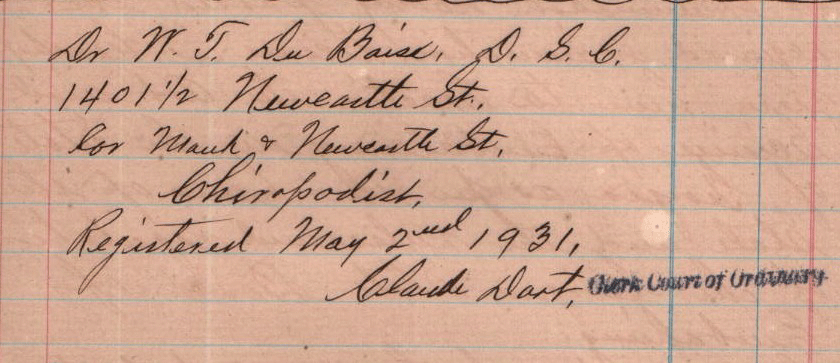 Dr W. T. Du Boise, D. S. C.
1401 1/2 Newcastle St.
Cor Monk & Newcastle St.
Chiropodist,
Registered May 2nd 1931,
Claude Dart, Clerk Court of Ordinary